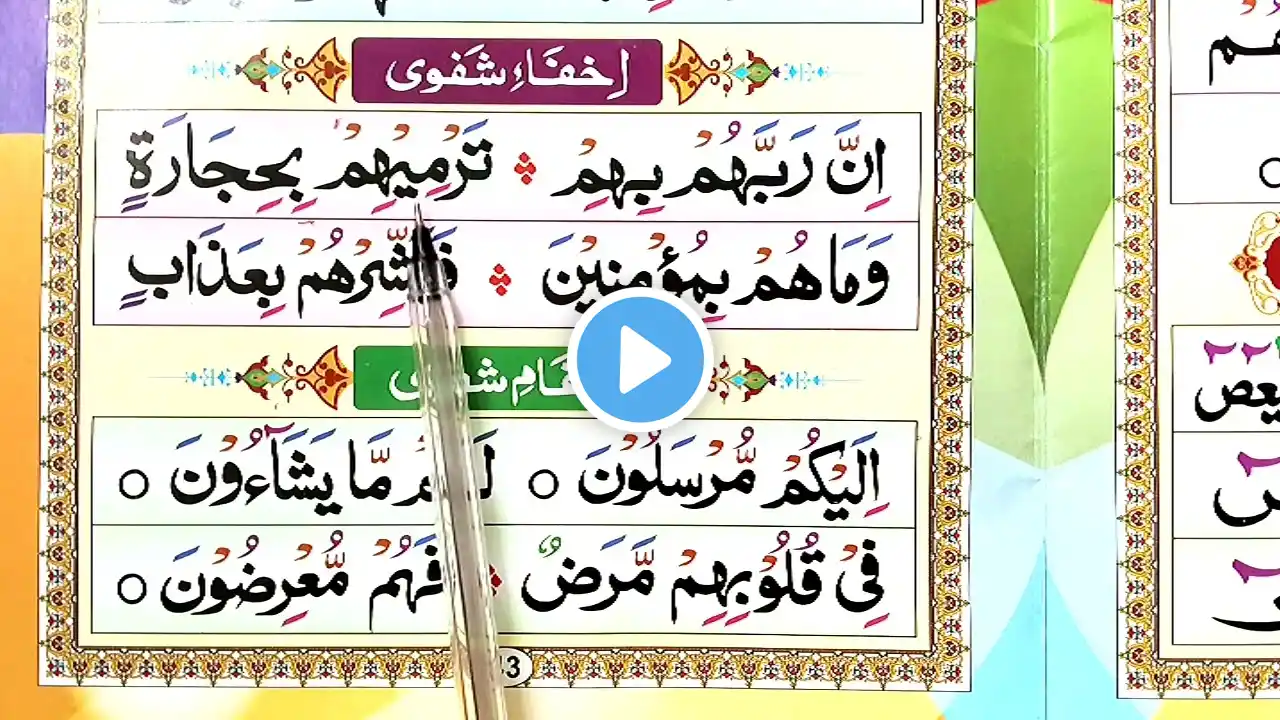 اِخفَاءِ شَفَوِی
اِنَّ رَبَّهُمْ بِهِمْ ۞ تَرْمِيْهِمْ بِحِجَارَةٍ
وَمَا هُمْ بِمُؤْمِنِيْنَ ۞ فَبَشِّرْهُمْ بِعَذَابٍ
شفوی
اِلَيْكُمْ مُّرْسَلُوْنَ ○ مَّا يَشَآءُوْنَ ○
فِیْ قُلُوْبِهِمْ مَّرَضٌ ۞ فَهُمْ مُّعْرِضُوْنَ ○